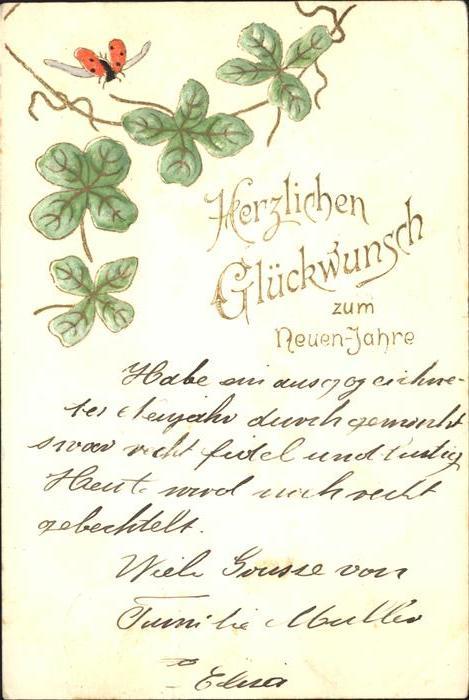 Herzlichen
Glückwunsch
zum
Neuen-Jahre
Habe ein
durchgemacht
recht fidel und lustig
Heute wird noch recht
gebechtelt.
Viele Grüsse von
Familie Müller
Elsa